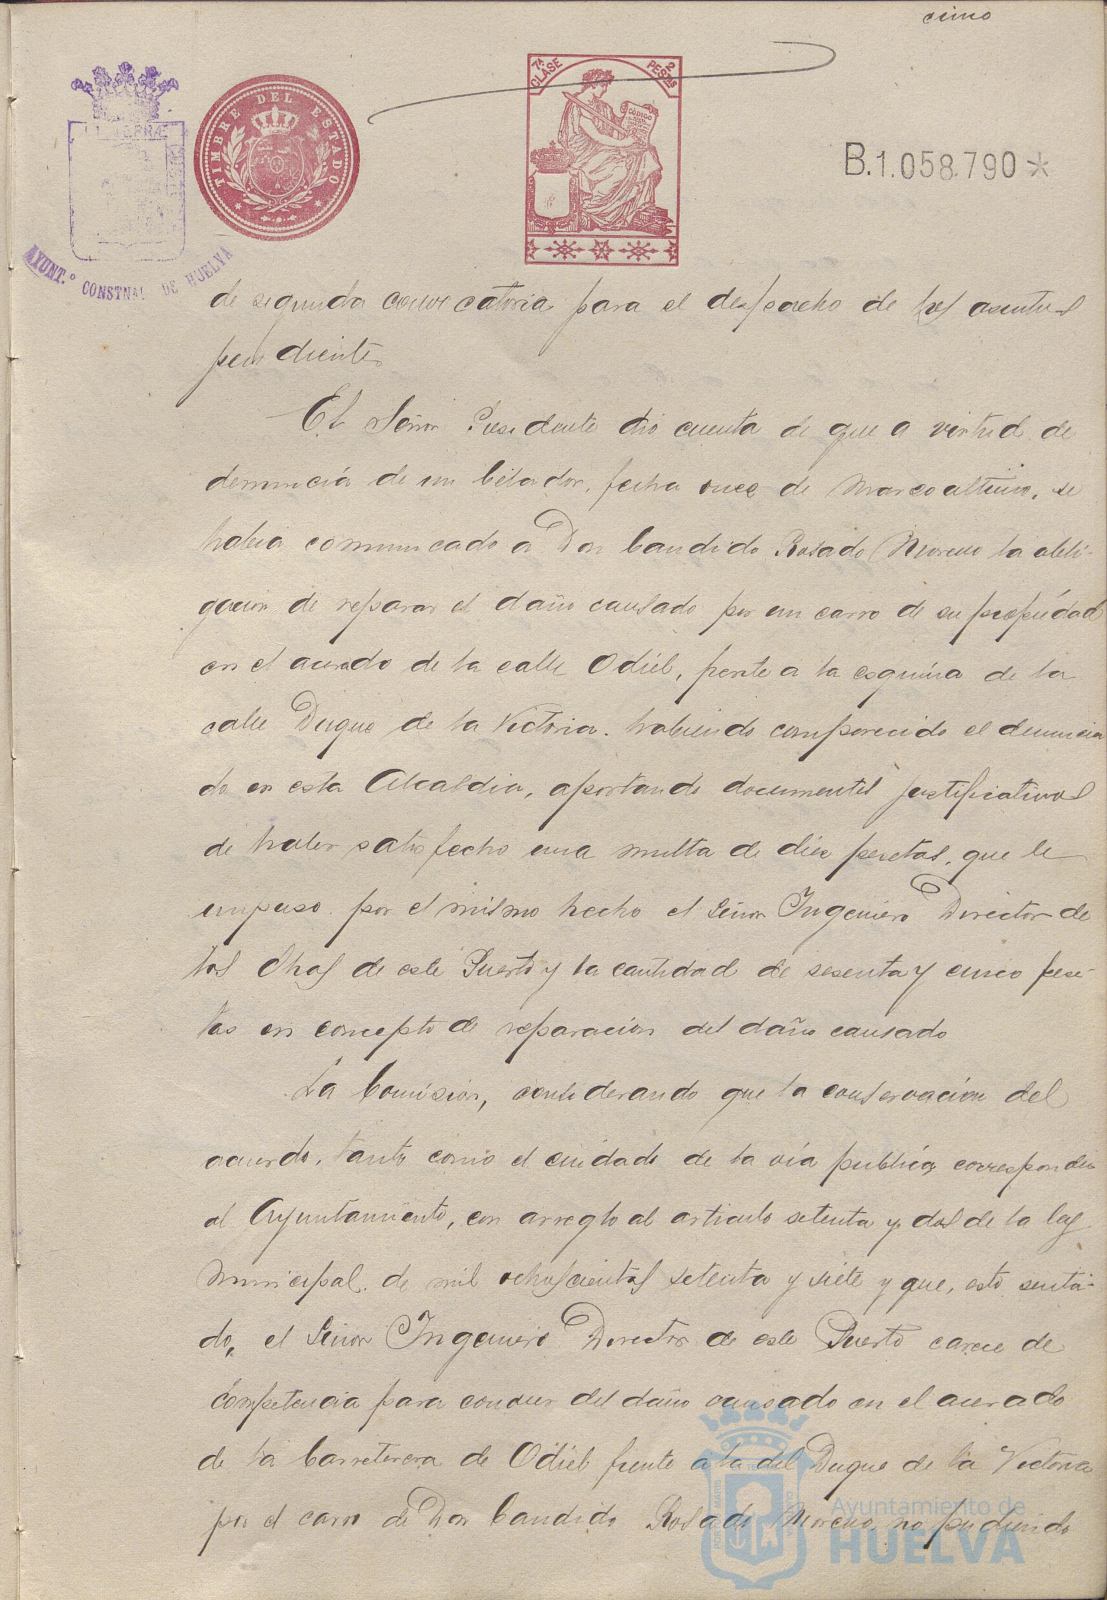 cinco
TIMBRE DEL ESTADO
7ª CLASE
2 PESETAS
CODIGO
B.1.058.790*
AYUNT.º CONSTNAL DE HUELVA
de segunda convocatoria para el despacho de los asuntos
pendientes
El Señor Presidente dió cuenta de que a virtud de
denuncia de un Celador, fecha once de Marzo ultimo, se
habia comunicado a Don Candido Rosado Moreno la obli-
gacion de reparar el daño causado por un carro de su propiedad
en el acerado de la calle Odiel, frente a la esquina de la
calle Duque de la Victoria. habiendo comparecido el denuncia
do en esta Alcaldia, aportando documentos justificativos
de haber satisfecho una multa de diez pesetas, que le
impuso por el mismo hecho el Señor Ingeniero Director de
las Obras de este Puerto y la cantidad de sesenta y cinco pese-
tas en concepto de reparacion del daño causado
La Comision, considerando que la conservacion del
acerado, tanto como el cuidado de la via publica corresponden
al Ayuntamiento, con arreglo al articulo setenta y dos de la ley
Municipal de mil ochocientos setenta y siete y que, esto senta-
do, el Señor Ingeniero Director de este Puerto carece de
competencia para conocer del daño causado en el acerado
de la Carretera de Odiel frente a la del Duque de la Victoria
por el carro de Don Candido Rosado Moreno, no pudiendo
Ayuntamiento de
HUELVA